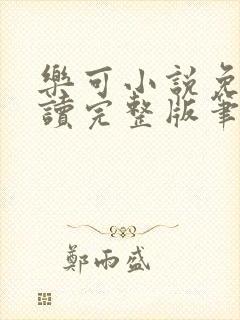 樂可小說免
讀完整版筆
鄭雨盛